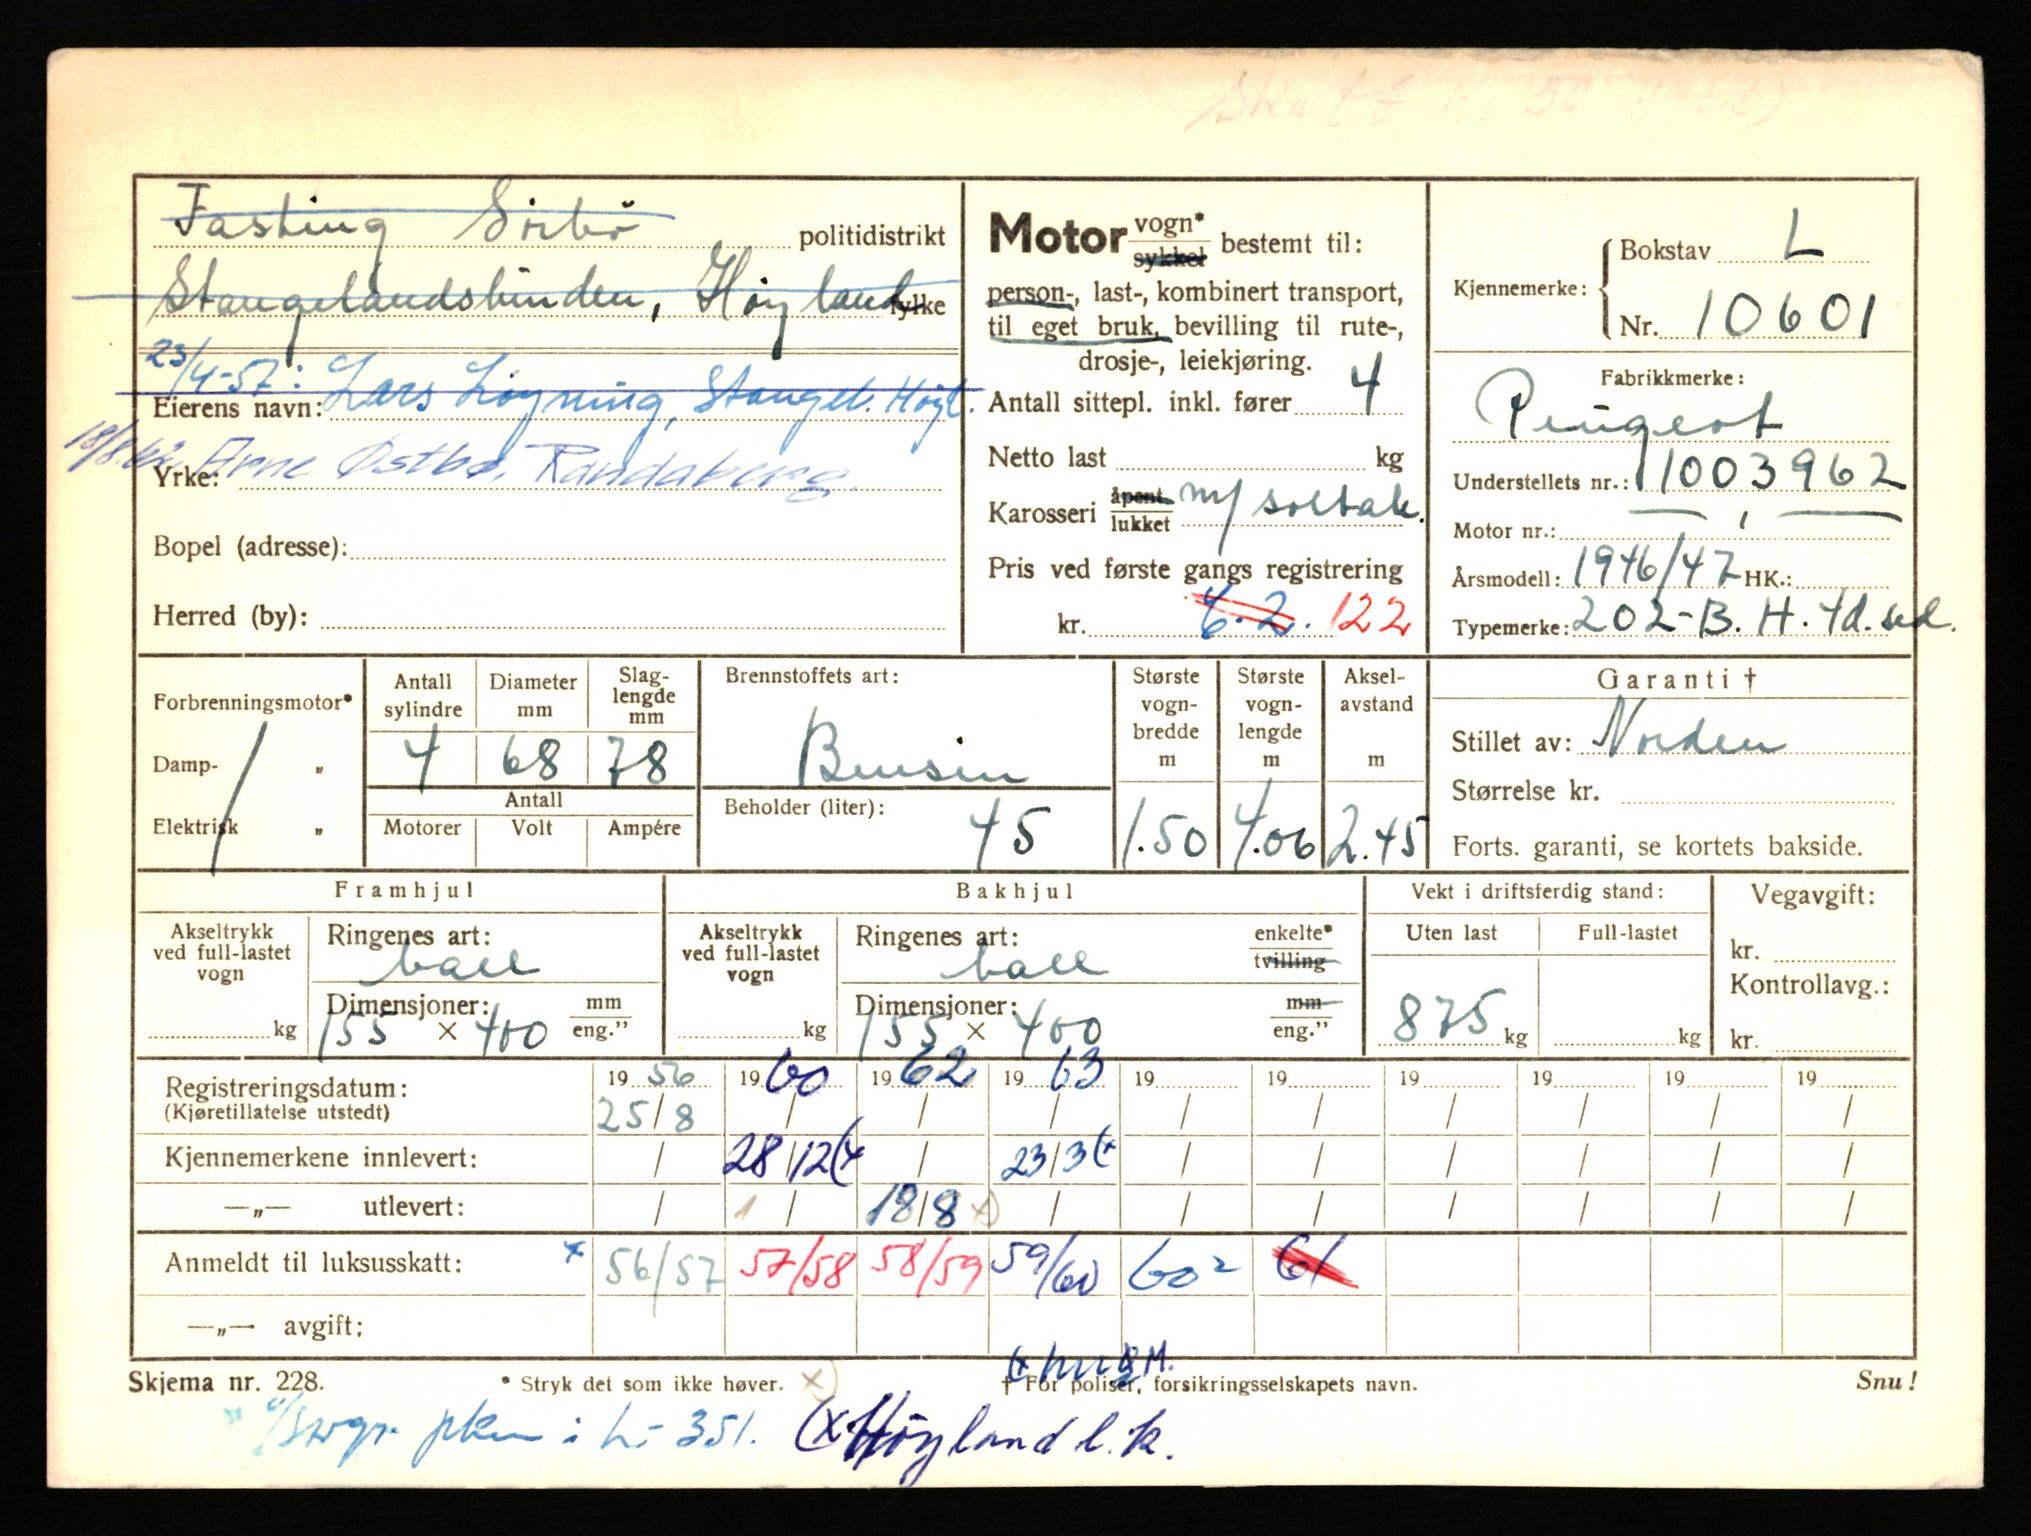 Fasting Sörbö politidistrikt
Stangelandslinden, Høyland fylke
23/4-57: Lars Løyning, Stangel. Høyl.
Eierens navn:
18/8.62 Arne Østbø, Randaberg.
Yrke:
Bopel (adresse):
Herred (by):
Motor vogn* sykkel bestemt til:
person-, last-, kombinert transport,
til eget bruk, bevilling til rute-,
drosje-, leiekjøring.
Antall sittepl. inkl. fører 4
Netto last kg
Karosseri åpent lukket m/ soltak.
Pris ved første gangs registrering
kr. 6.2. 122
Kjennemerke: Bokstav L
Nr. 10601
Fabrikkmerke:
Peugeot
Understellets nr.: 1003962
Motor nr.:
Årsmodell: 1946/47 HK.:
Typemerke: 202-B.H. 4d. sed.
Forbrenningsmotor*
Damp- „
Elektrisk „
Antall sylindre Diameter mm Slaglengde mm
4 68 78
Antall
Motorer Volt Ampére
Brennstoffets art:
Bensin
Beholder (liter): 45
Største vognbredde m Største vognlengde m Akselavstand m
1.50 4.06 2.45
Garanti †
Stillet av: Norden
Størrelse kr.
Forts. garanti, se kortets bakside.
Framhjul
Akseltrykk ved full-lastet vogn kg
Ringenes art: ball
Dimensjoner: mm eng.”
155 x 400
Bakhjul
Akseltrykk ved full-lastet vogn kg
Ringenes art: ball enkelte* tvilling
Dimensjoner: mm eng.”
155 x 400
Vekt i driftsferdig stand:
Uten last Full-lastet
875 kg kg
Vegavgift:
kr.
Kontrollavg.:
kr.
Registreringsdatum: 19 56 19 60 19 62 19 63 19 19 19 19 19 19
(Kjøretillatelse utstedt) 25/8 / / / / / / / / /
Kjennemerkene innlevert: / 28/12 (x / 23/3 (x / / / / / /
—„— utlevert: / / 18/8 x) / / / / / / /
Anmeldt til luksusskatt: x 56/57 57/58 58/59 59/60 60² 61
—„— avgift:
Skjema nr. 228. * Stryk det som ikke høver. x) † For poliser, forsikringsselskapets navn. Snu!
i L- 351. (x Høyland l.k.